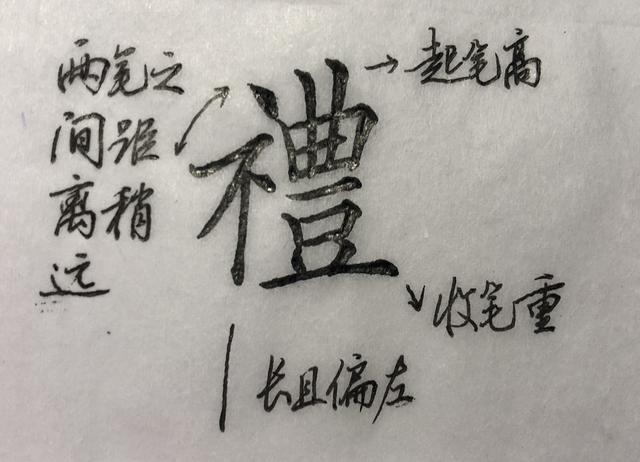 两笔之
间距
离稍
远
禮
→起笔高
收笔重
长且偏左